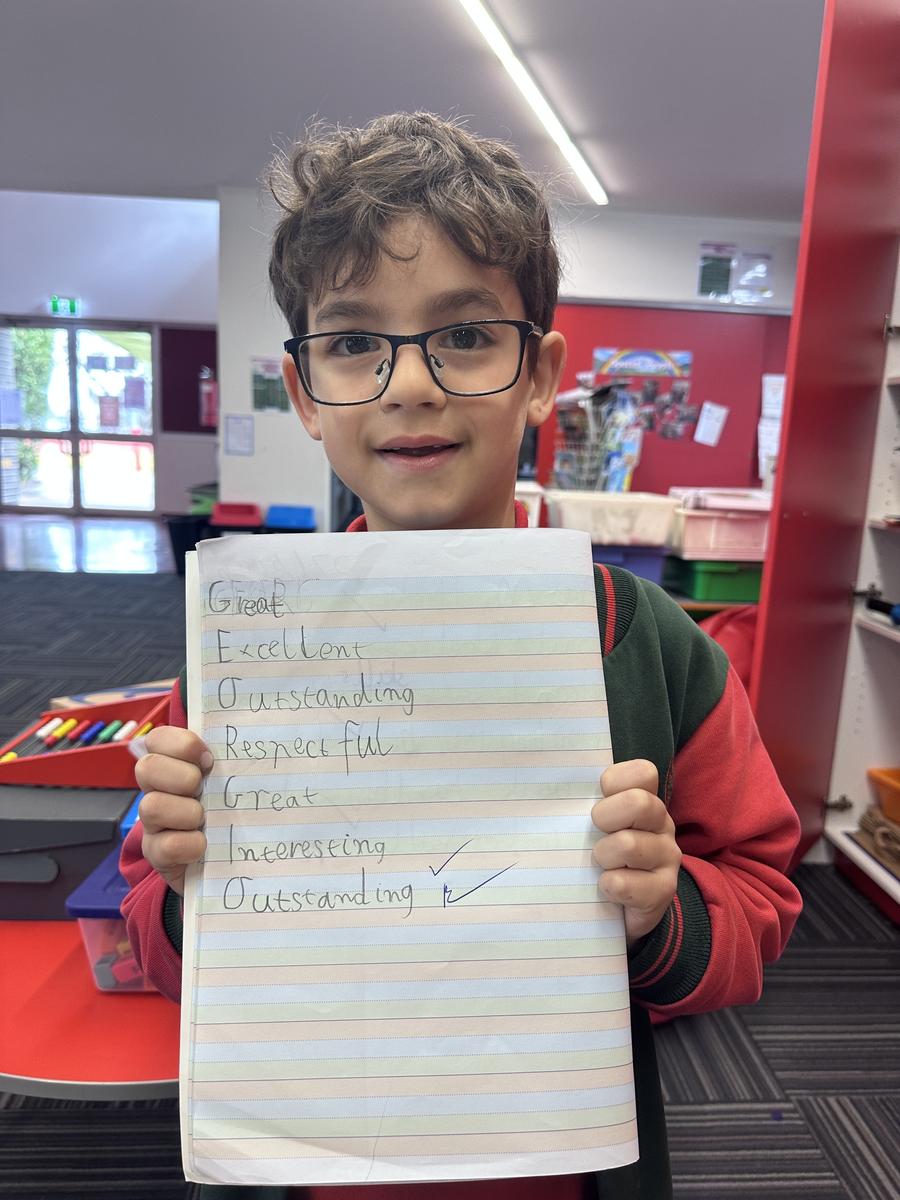 Great
Excellent
Outstanding
Respectful
Great
Interesting
Outstanding